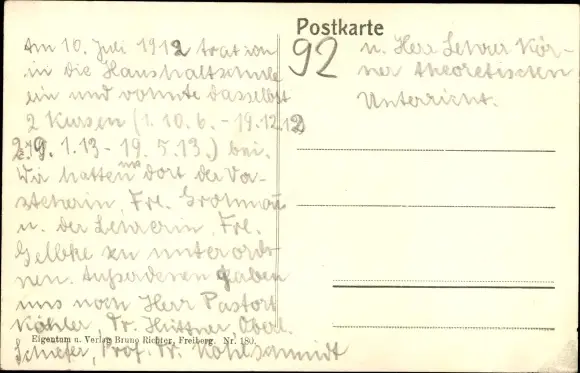 Postkarte
92
Am 10. Juli 1912 trat ich
in die Haushaltschule
ein und wohnte daselbst
2 Kursen (1. 10.6. - 19.12.12
2. 9. 1.13 - 19. 5.13.) bei.
Wir hatten uns dort der Vor-
steherin, Frl. Grohmann
u. der Lehrerin, Frl.
Gelbke zu unterord-
nen. Außerdem gaben
uns noch Herr Pastor
Köhler, Dr. Hüttner, Oberl.
Schiefer, Prof. Dr. Kohlschmidt
u. Herr Lehrer Kör-
ner theoretischen
Unterricht.
Eigentum u. Verlag Bruno Richter, Freiberg. Nr. 180.